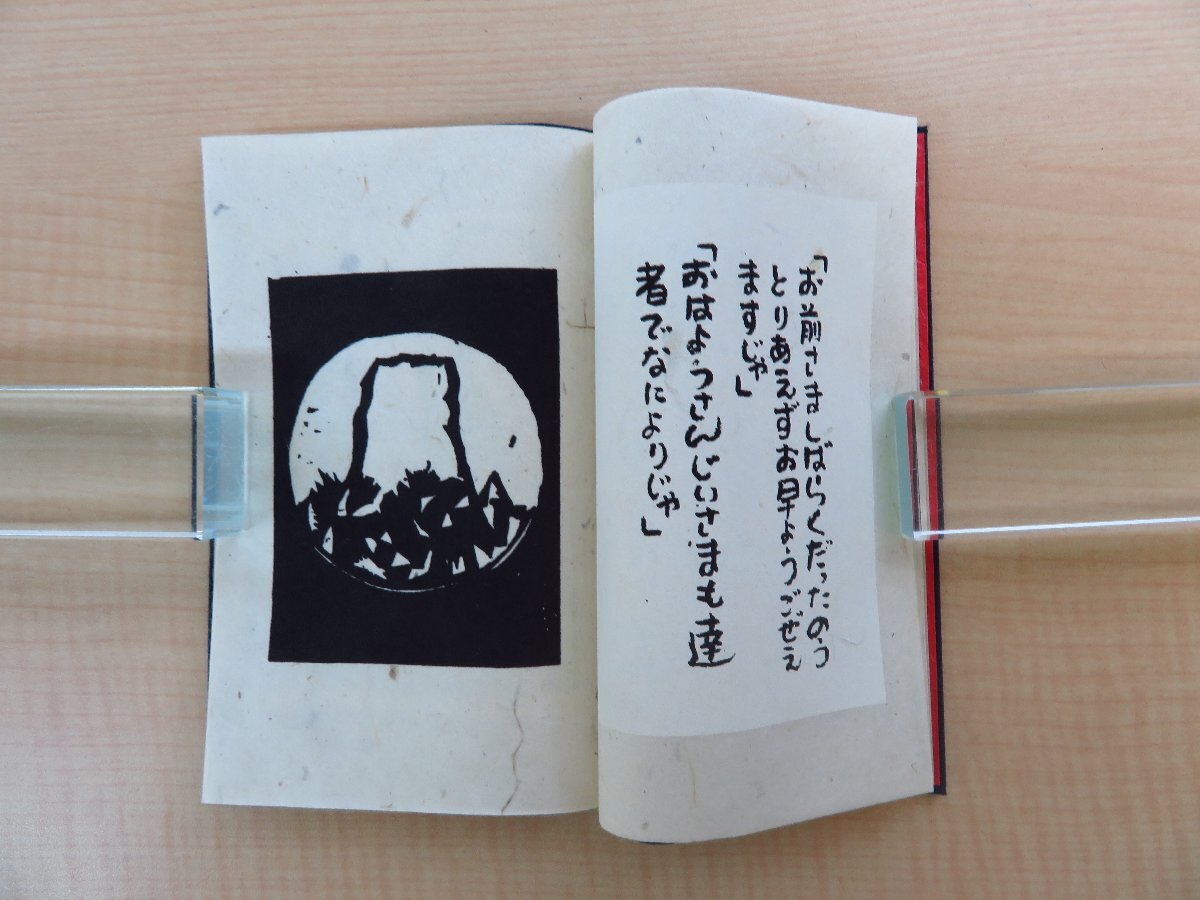 「お前さましばらくだったのう
とりあえずお早ようござぜえ
ますじゃ」
「おはようさんじいさまも達
者でなによりじゃ」